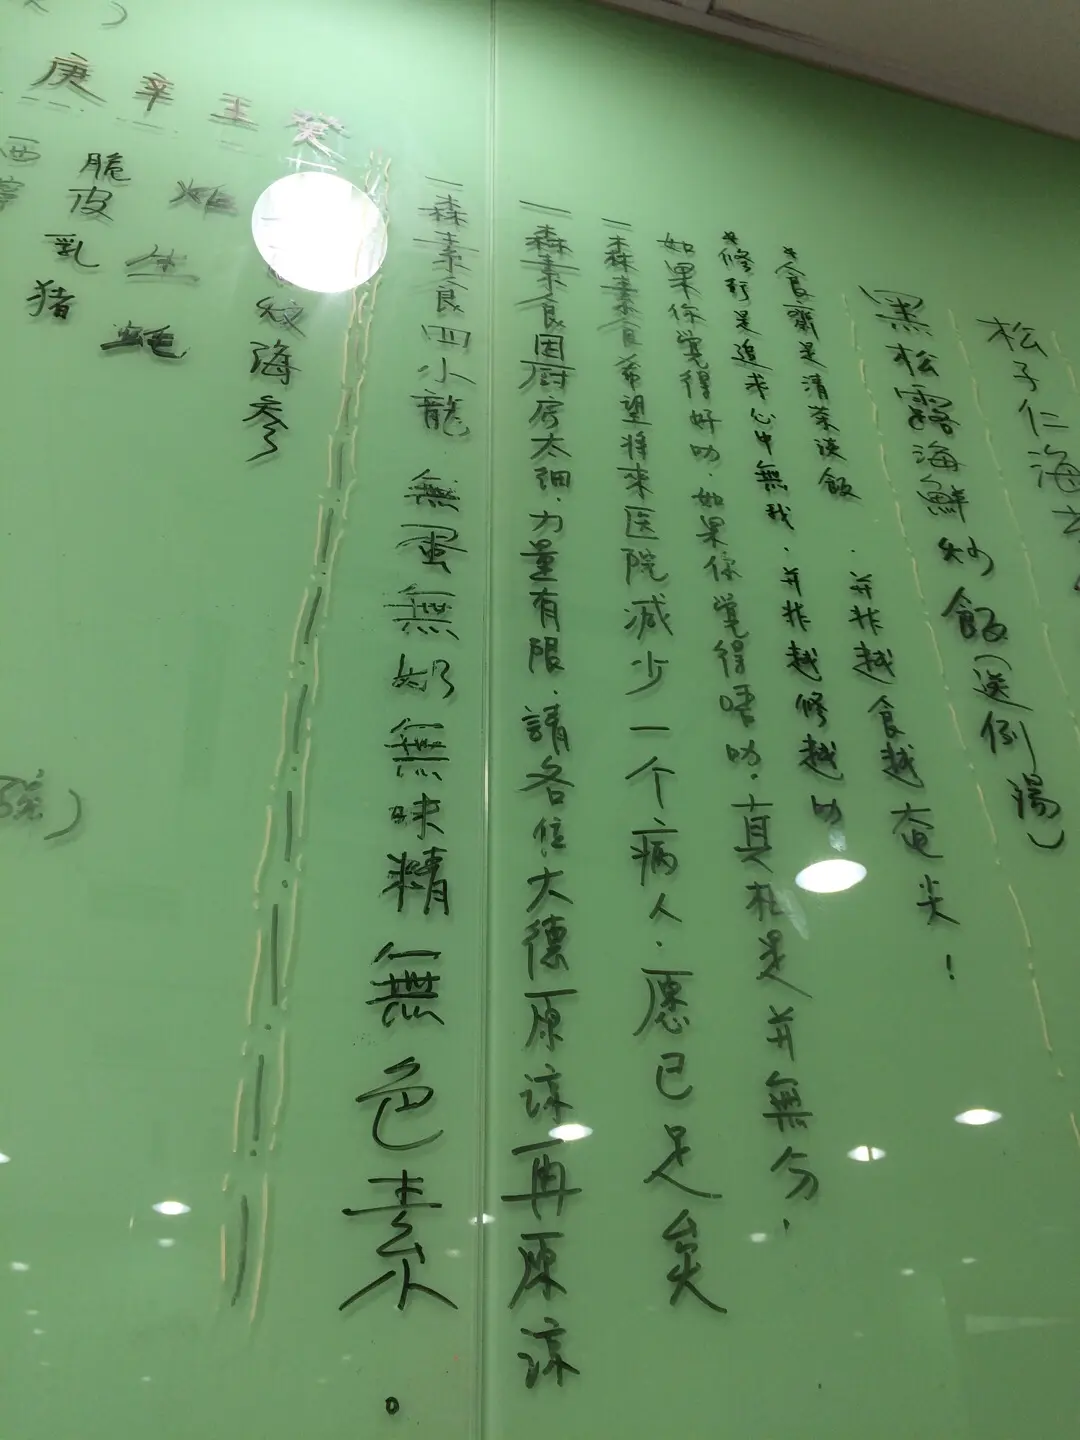 松子仁海
黑松露海鮮炒飯(送例湯)
*食齋是清茶淡飯．并非越食越奄尖！
*修行是追求心中無我．并非越修越叻
如果你覺得好叻．如果你覺得唔叻．真相是并無分．
一森素食希望將來医院減少一个病人．愿已足矣
一森素食因厨房太細．力量有限．請各位大德原諒再原諒
一森素食四小龍 無蛋無奶無味精無色素。
庚 辛 壬 癸
海參
生蠔
脆皮乳猪
西